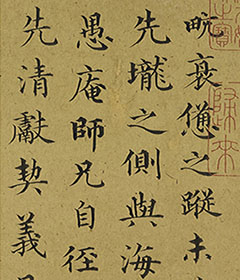 衰憊之蹤未
先壠之側與海
愚庵師兄自徑
先清獻契義